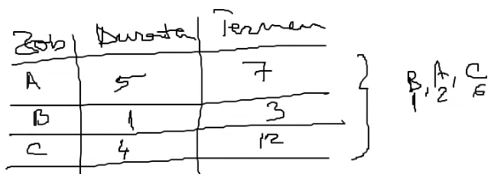 Job Durata Termen
A 5 7
B 1 3
C 4 12
B, A, C
1 2 6